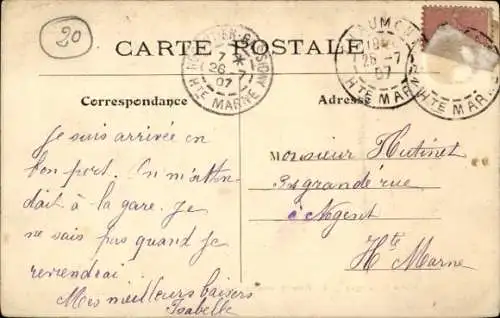 20
CARTE POSTALE
26-7
07
HTE MARNE
CHAUMONT
26-7
07
HTE MARNE
HTE MARNE
Correspondance
Adresse
Je suis arrivée en
bon port. On m'atten
dait à la gare. Je
ne sais pas quand je
reviendrai
Mes meilleurs baisers
Isabelle
Monsieur Hutinet
grande rue
à Nogent
Hte Marne